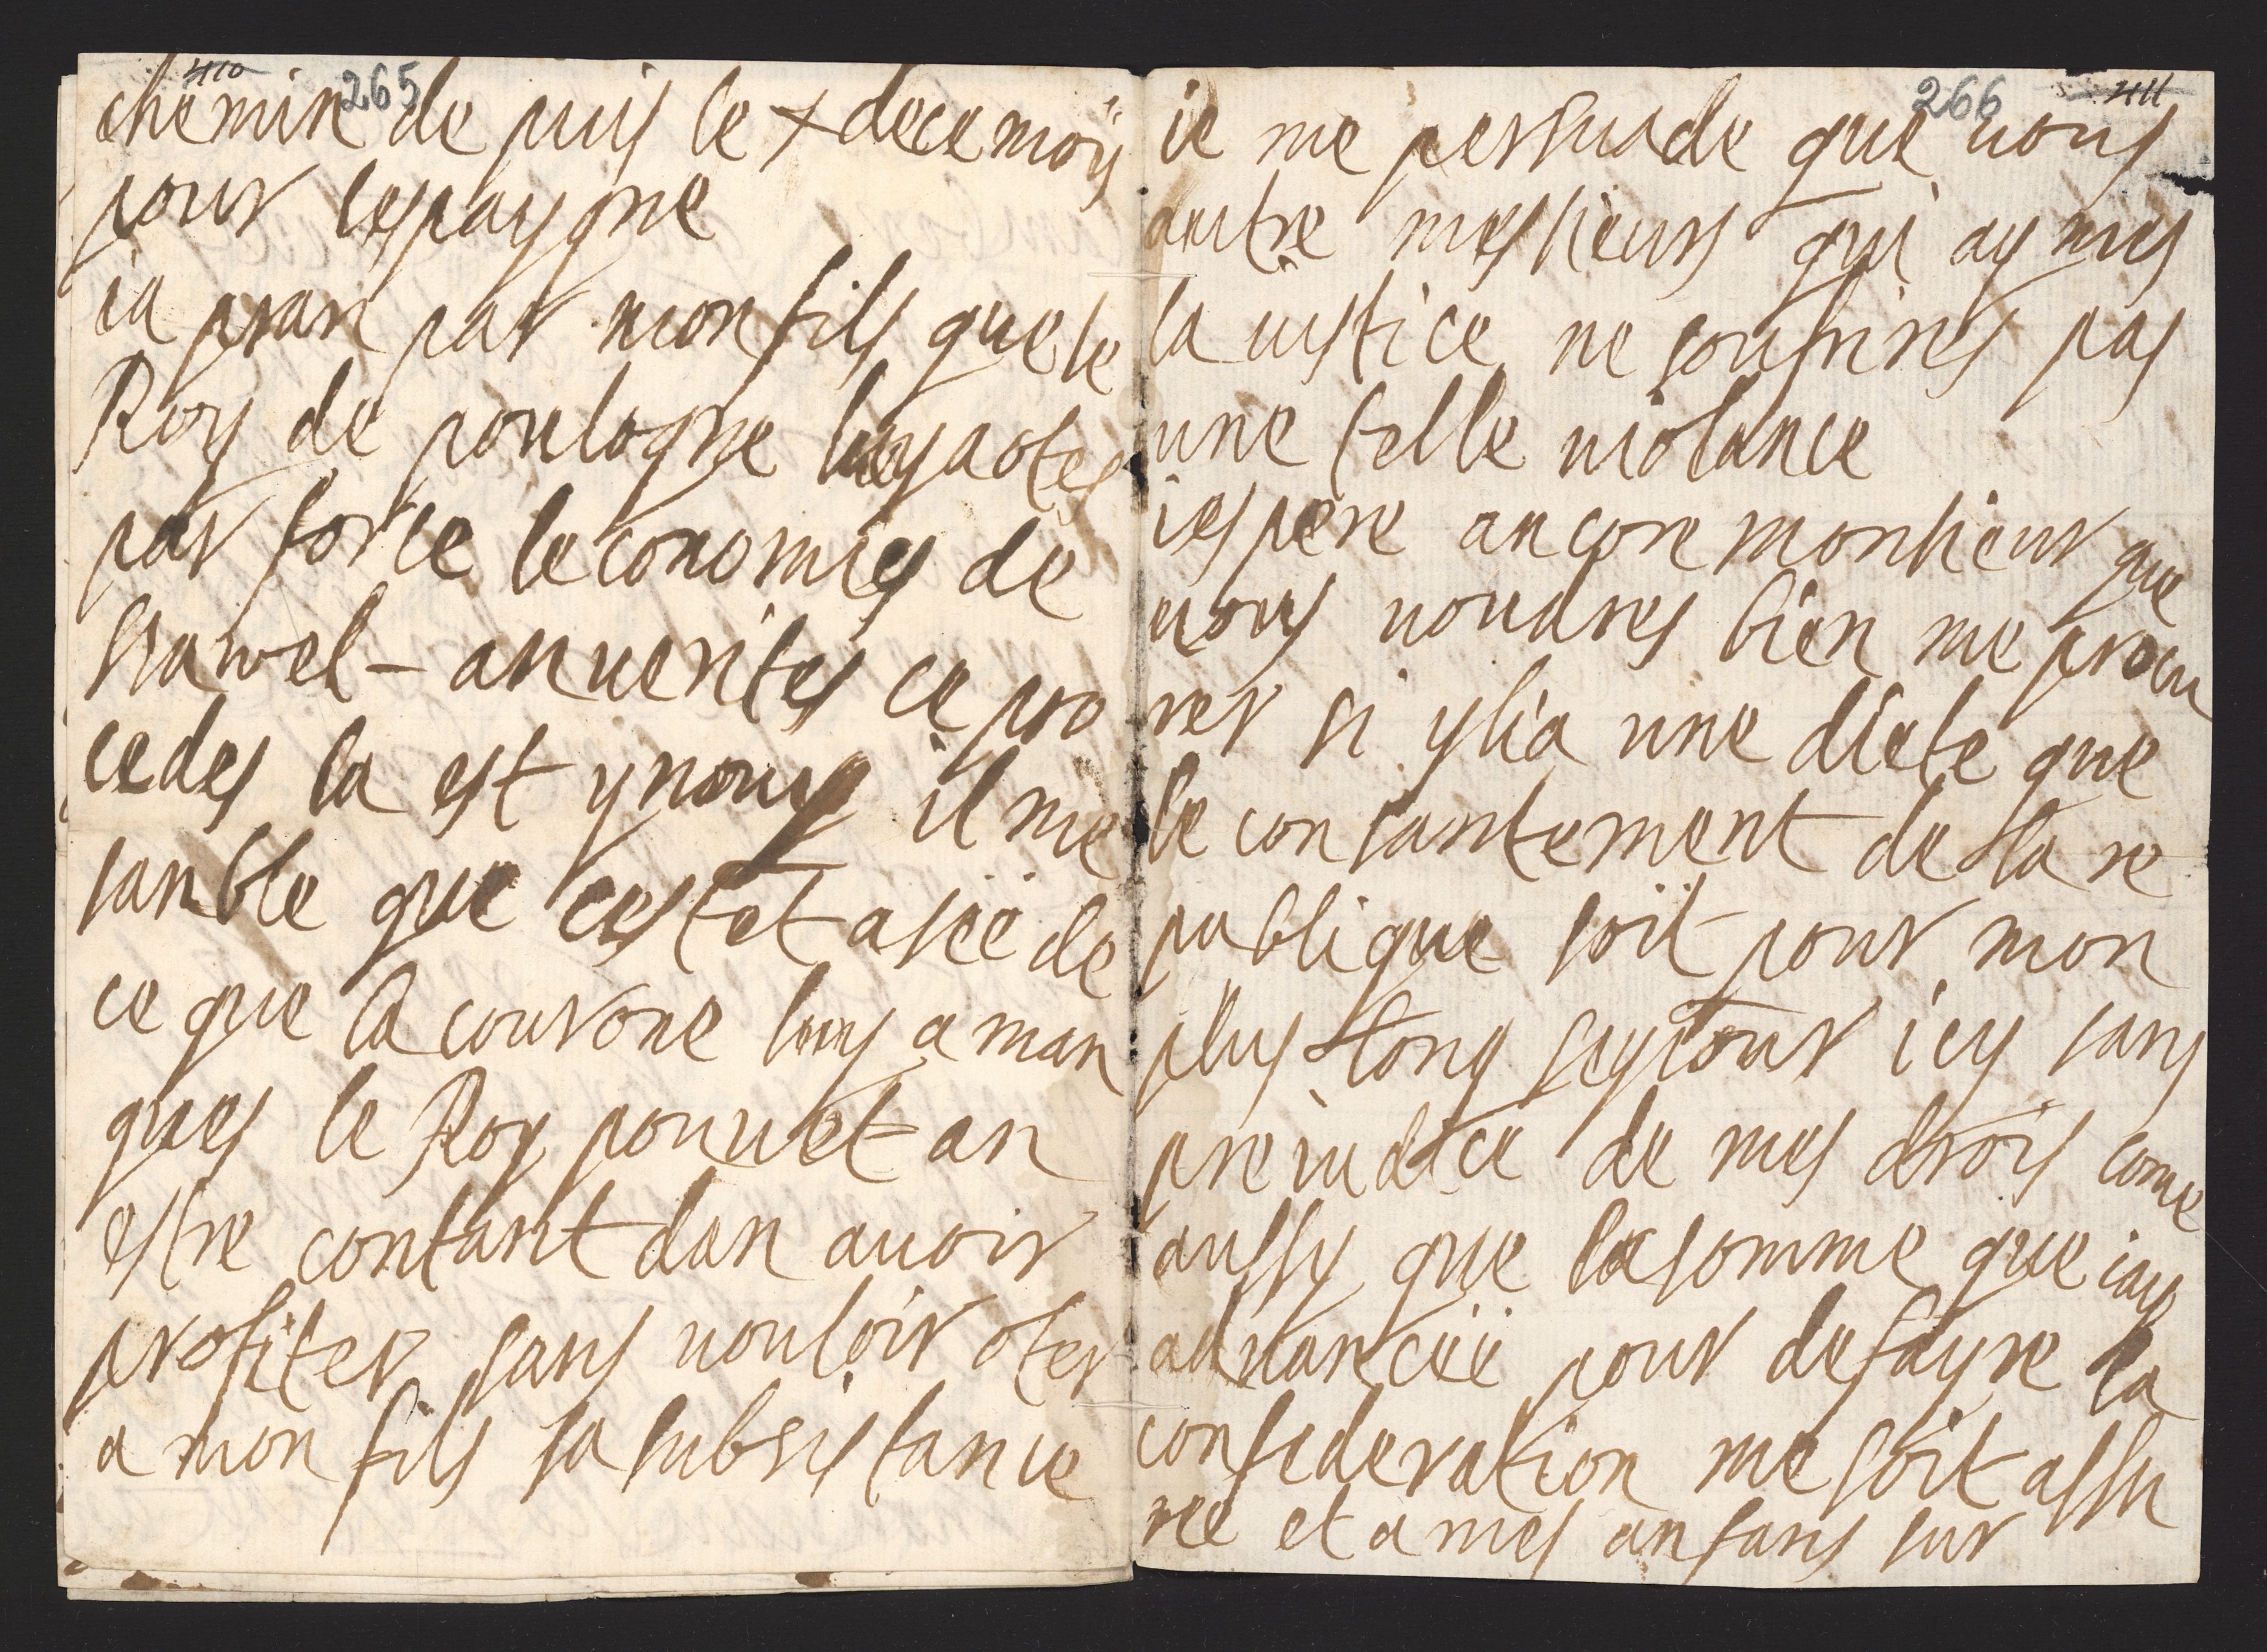 410 265
chemin de puis le x de ce mois
pour lespaygne
ia pran par mon fils que le
Roy de poulogne luy a otes
par force leconomies de
Szawel - an verites ce pro
cedes la est ynouy il me
sanble que cestet aséé de
ce que la courone luy a man
ques le Roy pouvet an
estre contant dan avoir
profiter sans vouloir oter
a mon fils sa subsistance
266 411
ie me persuade que vous
autre messieurs qui aymes
la iustice ne soufrires pas
une telle violance
iespere ancore monsieur que
vous voudres bien me procu
rer si ylia une diete que
le consantement de la re
publique soit pour mon
plus long seyiour icy sans
preiudice de mes drois come
aussy que la somme que iay
advancéé pour defayre la
confederation me soit assu
réé et a mes anfans sur